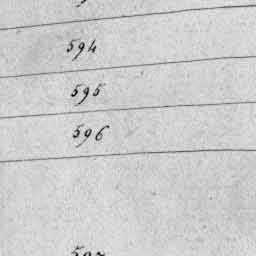 594
595
596